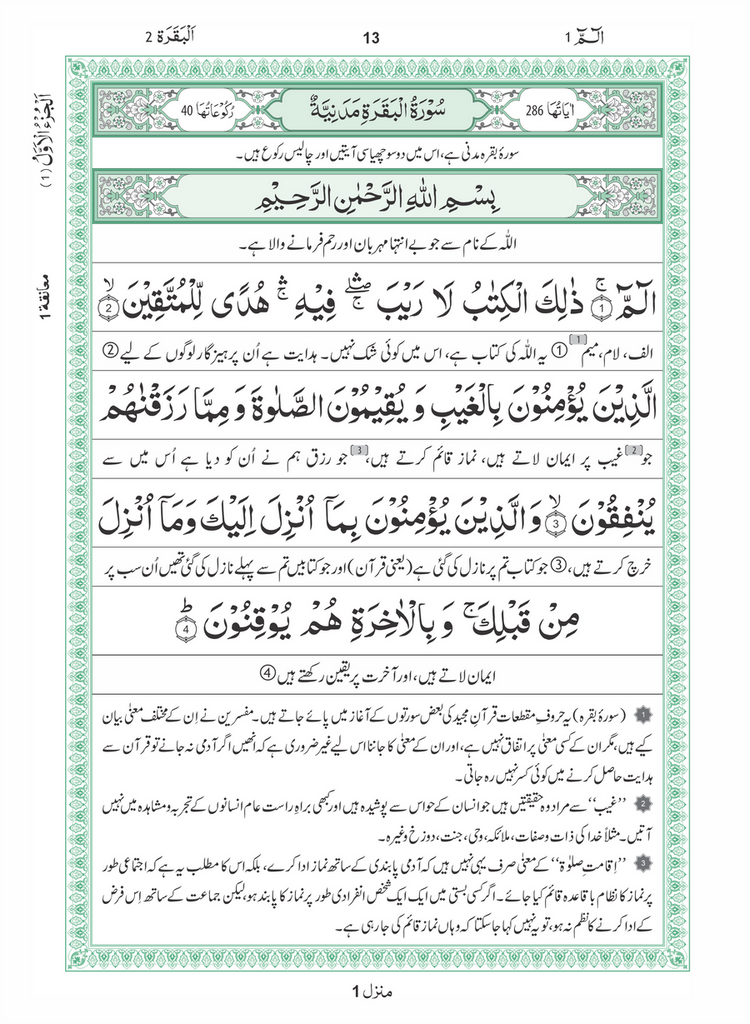 الٓمّٓ 1
13
اَلْبَقَرَة 2
اَلْجُزْءُ الْاَوَّلُ (1)
معانقة 1
اٰیَاتُهَا 286
سُوْرَةُ الْبَقَرَةِ مَدَنِيَّةٌ
رُكُوْعَاتُهَا 40
سورۂ بقرہ مدنی ہے، اس میں دو سو چھیاسی آیتیں اور چالیس رکوع ہیں۔
بِسْمِ اللّٰهِ الرَّحْمٰنِ الرَّحِيْمِ
اللّٰہ کے نام سے جو بے انتہا مہربان اور رحم فرمانے والا ہے۔
الٓمّٓ ۚ ﴿1﴾ ذٰلِكَ الْكِتٰبُ لَا رَيْبَ ۛۖۚ فِيْهِ ۛۚ هُدًى لِّلْمُتَّقِيْنَ ۙ ﴿2﴾
الف، لام، میم [1] ① یہ اللّٰہ کی کتاب ہے، اس میں کوئی شک نہیں۔ ہدایت ہے اُن پرہیز گار لوگوں کے لیے ②
الَّذِيْنَ يُؤْمِنُوْنَ بِالْغَيْبِ وَ يُقِيْمُوْنَ الصَّلٰوةَ وَ مِمَّا رَزَقْنٰهُمْ
جو [2] غیب پر ایمان لاتے ہیں، نماز قائم کرتے ہیں، [3] جو رزق ہم نے اُن کو دیا ہے اُس میں سے
يُنْفِقُوْنَ ۙ ﴿3﴾ وَالَّذِيْنَ يُؤْمِنُوْنَ بِمَاۤ اُنْزِلَ اِلَيْكَ وَمَاۤ اُنْزِلَ
خرچ کرتے ہیں، ③ جو کتاب تم پر نازل کی گئی ہے (یعنی قرآن) اور جو کتابیں تم سے پہلے نازل کی گئی تھیں اُن سب پر
مِنْ قَبْلِكَ ۚ وَ بِالْاٰخِرَةِ هُمْ يُوْقِنُوْنَ ؕ ﴿4﴾
ایمان لاتے ہیں، اور آخرت پر یقین رکھتے ہیں ④
1 (سورۂ بقرہ) یہ حروفِ مقطعات قرآنِ مجید کی بعض سورتوں کے آغاز میں پائے جاتے ہیں۔ مفسرین نے اِن کے مختلف معنیٰ بیان
کیے ہیں، مگر ان کے کسی معنیٰ پر اتفاق نہیں ہے، اور ان کے معنیٰ کا جاننا اس لیے غیر ضروری ہے کہ انھیں اگر آدمی نہ جانے تو قرآن سے
ہدایت حاصل کرنے میں کوئی کسر نہیں رہ جاتی۔
2 ’’غیب‘‘ سے مراد وہ حقیقتیں ہیں جو انسان کے حواس سے پوشیدہ ہیں اور کبھی براہِ راست عام انسانوں کے تجربہ و مشاہدہ میں نہیں
آتیں۔ مثلاً خدا کی ذات و صفات، ملائکہ، وحی، جنت، دوزخ وغیرہ۔
3 ’’اِقامتِ صلوٰۃ‘‘ کے معنیٰ صرف یہی نہیں ہیں کہ آدمی پابندی کے ساتھ نماز ادا کرے، بلکہ اس کا مطلب یہ ہے کہ اجتماعی طور
پر نماز کا نظام باقاعدہ قائم کیا جائے۔ اگر کسی بستی میں ایک ایک شخص انفرادی طور پر نماز کا پابند ہو، لیکن جماعت کے ساتھ اِس فرض
کے ادا کرنے کا نظم نہ ہو، تو یہ نہیں کہا جا سکتا کہ وہاں نماز قائم کی جا رہی ہے۔
منزل 1